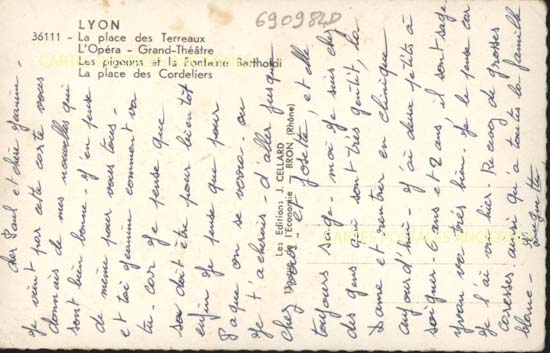 6909840
LYON
36111 - La place des Terreaux
L'Opéra - Grand-Théâtre
Les pigeons et la Fontaine Bartholdi
La place des Cordeliers
Les Editions J. CELLARD
de l'Economie BRON (Rhône)
CARTES POSTALES ANCIENNES
Paul et
Je vient par cette carte vous
donnais de mes nouvelles qui
sont bien bonne j'en pense
de même pour vous tous -
et toi comment va
tu. car je pense que
sa doit être pour bientot
enfin je pense que pour
Paque on se verra. ou
je t'acherais - d'aller jusque
chez vous - et Josette, et elle
toujours sage - moi je suis chez
des gens qui sont très gentil, la
Dame et rentrer en clinique
aujourd'hui - j'ai deux petits à
soigner - ans et 2 ans, il sont sage
Yvan va très bien. Je le pense car
je l'ai vu hier. Recoz de grosses
caresses ainsi qu'a toute la famille